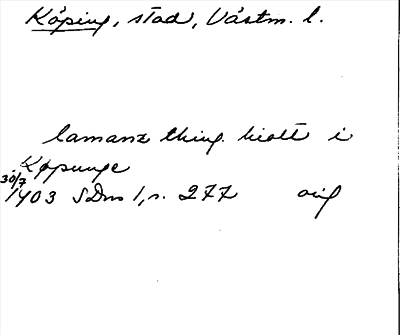 Köping, stad, Västm. l.
lamanz thing hiolt i
Køpunge
30/7
1403 SDns 1, s. 277 orig